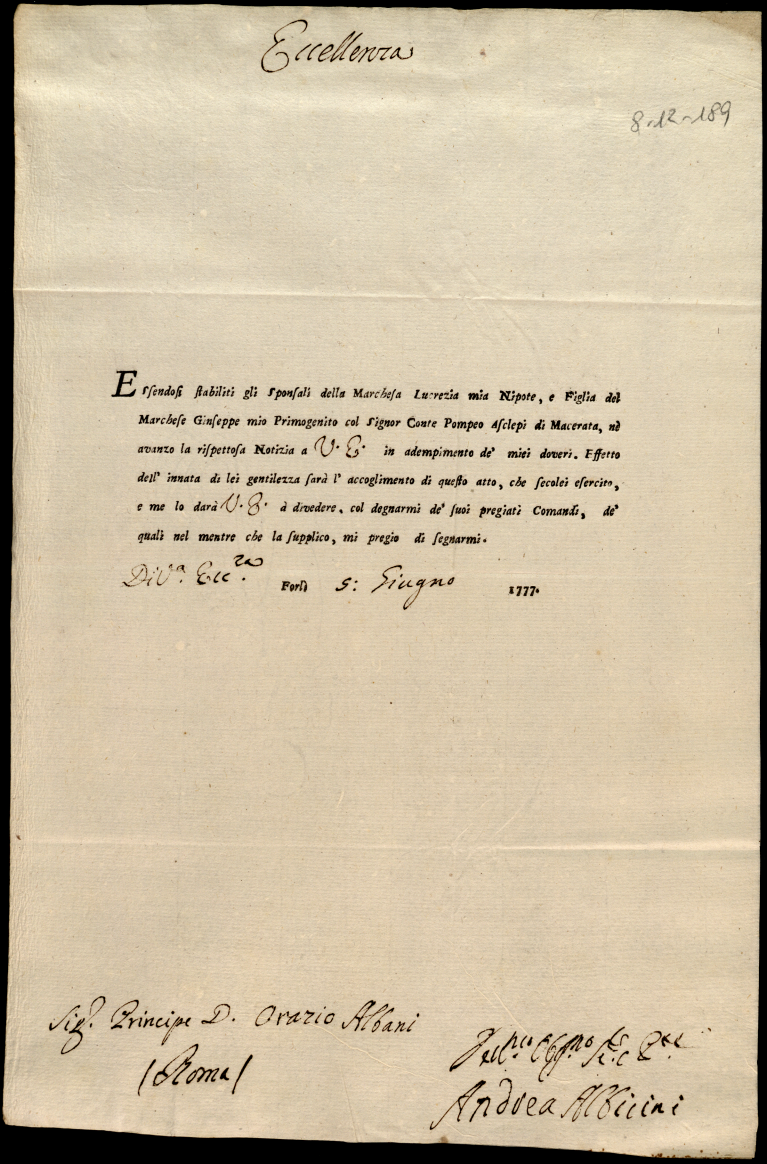 Eccellenza
8-12-189
Essendosi stabiliti gli Sponsali della Marchesa Lucrezia mia Nipote, e Figlia del
Marchese Giuseppe mio Primogenito col Signor Conte Pompeo Asclepi di Macerata, nè
avanzo la rispettosa Notizia a V. E. in adempimento de' miei doveri. Effetto
dell' innata di lei gentilezza sarà l' accoglimento di questo atto, che secolei esercito,
e me lo darà V. E. à divedere, col degnarmi de' suoi pregiati Comandi, de'
quali nel mentre che la supplico, mi pregio di segnarmi.
Di V.a Ecc.za Forlì 5: Giugno 1777.
Sig.r Principe D. Orazio Albani
(Roma)
Andrea Albicini